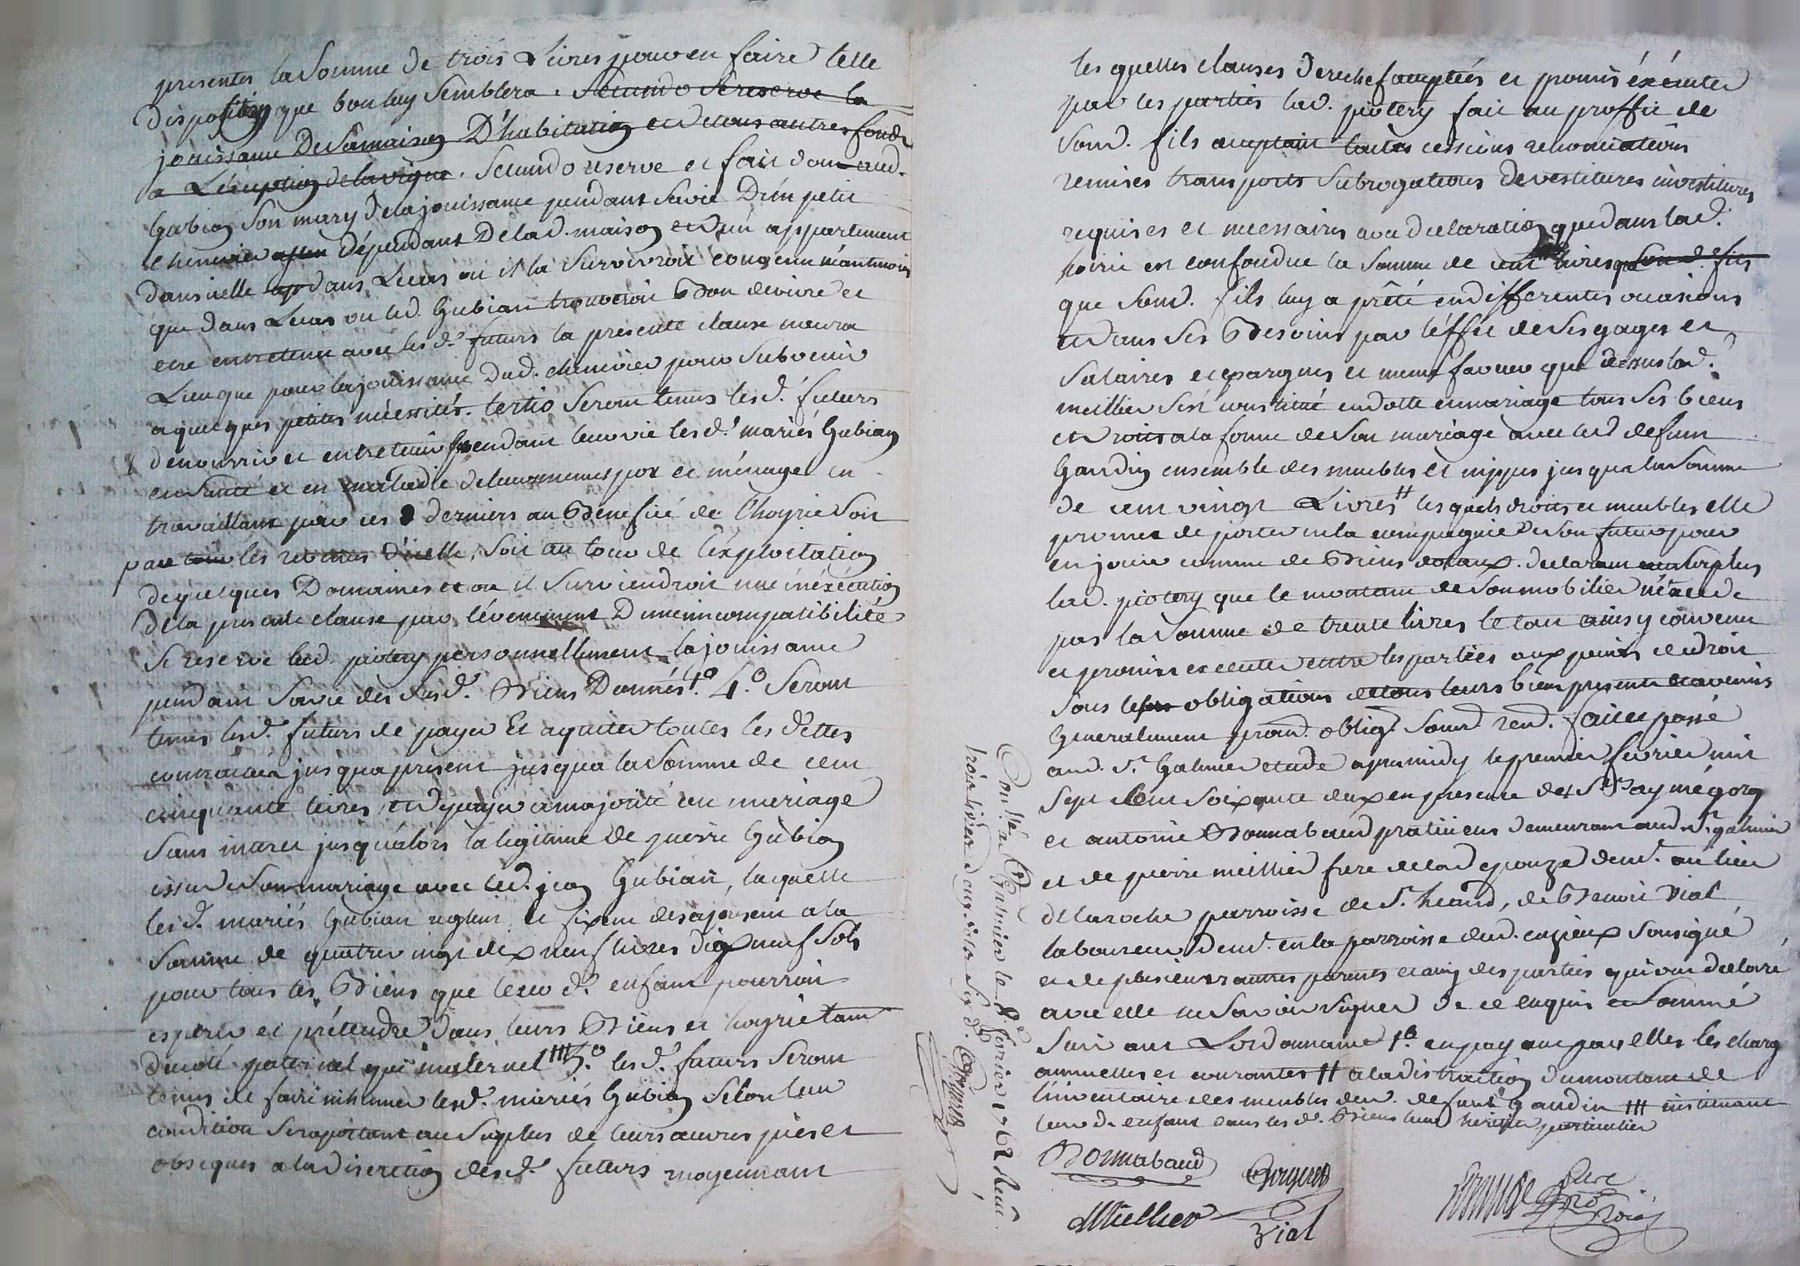 presentes la Somme de trois Livres pour en faire telle
disposition que bon luy Semblera. Secundo Se reserve la
jouissance De Sa maison D'habitation et de tous autres fonds
a L'éxeption de la vigne. Secundo reserve et fait don aud.
Gubian Son mary de la jouissance pendant Sa vie D'un petit
chenevier dépendant De lad. maison et d'un appartement
dans icelle dans Le cas ou il la Survivroit convenu néantmoins
que dans Le cas ou led. Gubian trouveroit Bon de vivre et
etre entretenu avec les d.s futurs la présente clause n'aura
Lieu que pour la jouissance Dud. chenevier pour Subvenir
a quelques petites nécessités. tertio Seront tenus les d.s futurs
de nourrir et entretenir pendant leur vie les d.s mariés Gubian
en Santé et en maladie de leurs mêmes pot et ménage en
travaillant par ces derniers au Bénéfice de L'hoyrie Soit
par les d'icelle, Soit au tour de l'exploitation
de quelques Domaines et ou il Surviendroit une inéxécution
De la présente clause par l'évenement D'une incompatibilité
Se reserve lad. piotery personnellement la jouissance
pendant Sa vie des Susd.s Biens Donnés 1.º 4.º Seront
tenus les d.s futurs de payer Et aquiter toutes les dettes
contractées jusqu'a présent jusqua la Somme de cent
cinquante livres, et de payer a majorité ou mariage
Sans interet jusqu'alors la légitime de pierre Gubian
issu de Son mariage avec led. jean Gubian, laquelle
les d.s mariés Gubian reglent et fixent des a présent a la
Somme de quatre vingt dix neuf livres dix neuf Sols
pour tous les Biens que leur d. enfant pourroit
esperer et prétendre dans leurs Biens et hoyrie tant
du coté paternel que maternel ttt 5.º les d.s futurs Seront
tenus de faire inhumer les d.s mariés Gubian Selon leur
condition Se raportant au Surplus de leurs œuvres pies et
obseques a la discretion des d.s futurs moyennant
les quelles clauses derechef acceptées et promis éxécuter
par les parties lad. piotery fait au proffit de
Sond. fils acceptant toutes cessions renonciations
remises transports Subrogations devestitures investitures
requises et necessaires avec declaration que dans lad.
hoirie est confondue la Somme de cent livres
que Sond. fils luy a prêté en differentes occasions
et dans Ses Besoins par l'effet de Ses gages et
Salaires et epargnes et meme faveur que dessus lad.
meillier S'est constitué en dotte en mariage tous Ses biens
et droits a la forme de Son mariage avec led. defunt
Gandin ensemble des meubles et nippes jusqu'a la Somme
de cent vingt Livres tt les quels droits et meubles elle
promet de porter en la compagnie de Son futur pour
en jouir comme de Biens dotaux. declarant au Surplus
lad. piotery que le montant de Son mobilier n'éxcede
pas la Somme de trente livres le tout ainsy convenu
et promis éxécuter entre les parties aux peines de droit
Sous les obligations de tous leurs biens presents et avenirs
Generalement prom. oblig. Soum. ren. fait et passé
aud. S.t Galmier etude apres midy le premier fevrier mil
Sept Cent Soixante deux en presence des S.rs aymé gorg
et antoine Bonnabaud praticiens demeurant aud. S.t galmier
et de pierre meillier frere de lad. epouze dem.t au lieu
de la roche parroisse de S.t heand, de Benoit Vial
laboureur dem.t en la parroisse dud. cuzieux Sousigné
et de plusieurs autres parents et amis des parties qui ont declaré
avec elle ne Savoir Signer de ce enquis et Sommé
Suivant L'ordonnance 1.º en payant par elles les charges
annuelles et courantes tt a la distraction du montant de
l'inventaire des meubles dud. defunt Gandin ttt instituant
leur d. enfant dans les d. Biens leur heritier particulier
Bonnabaud
Meillier
Vial
Con.llé a S.t Galmier le 8.e fevrier 1762 Reçu
trois livres